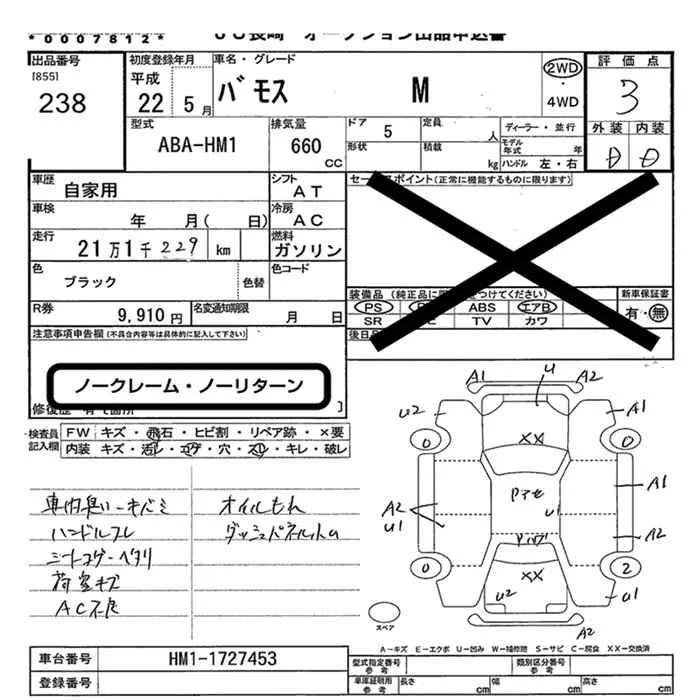 *0007812*
JU長崎 オークション出品申込書
出品番号
[855]
238
初度登録年月
平成
22 5月
車名・グレード
バモス M
2WD
・
4WD
評価点
3
外装 内装
D D
型式
ABA-HM1
排気量
660
cc
ドア
5
定員
人
形状
積載
kg
ディーラー・並行
モデル年式 年
ハンドル 左・右
車歴
自家用
シフト
AT
車検
年 月( 日)
冷房
AC
走行
21万1千229 km
燃料
ガソリン
色
ブラック
色替
色コード
R券
9,910円
名変通知期限
月 日
セールスポイント(正常に機能するものに限ります)
装備品
PS ABS エアB
SR TV カワ
新車保証書
有・無
注意事項申告欄(不具合内容等は具体的に記入して下さい)
ノークレーム・ノーリターン
検査員記入欄
FW キズ・飛石・ヒビ割・リペア跡・×要
内装 キズ・汚レ・コゲ・穴・スレ・キレ・破レ
車内臭い・キバミ
ハンドルスレ
シートコゲ・ヘタリ
荷室キズ
AC不良
オイルもれ
A1 U A2
U2 A1
0 XX 0
A2
U1
Pアセ
U1
A1
A2
0 XX 2
U2 U1
A2
スペア
A-キズ E-エクボ U-凹み W-補修跡 S-サビ C-腐食 XX-交換済
車台番号
HM1-1727453
登録番号
型式指定番号
参考
類別区分番号
参考
車庫証明用
参考
長さ cm
幅 cm
高さ cm